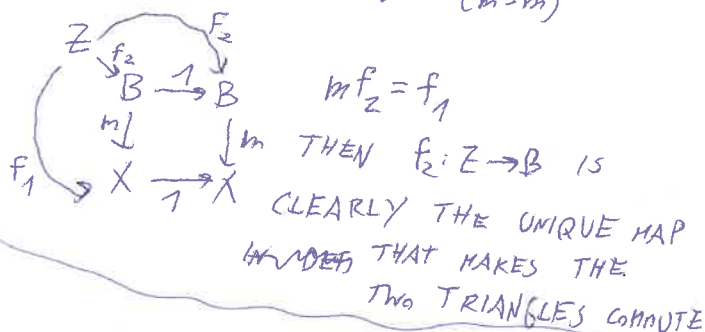 (m-m)
Z f₂
f₂
B 1→ B mf₂ = f₁
m↓ ↓m THEN f₂: Z→B IS
f₁ X 1→ X CLEARLY THE UNIQUE MAP
THAT MAKES THE
TWO TRIANGLES COMMUTE